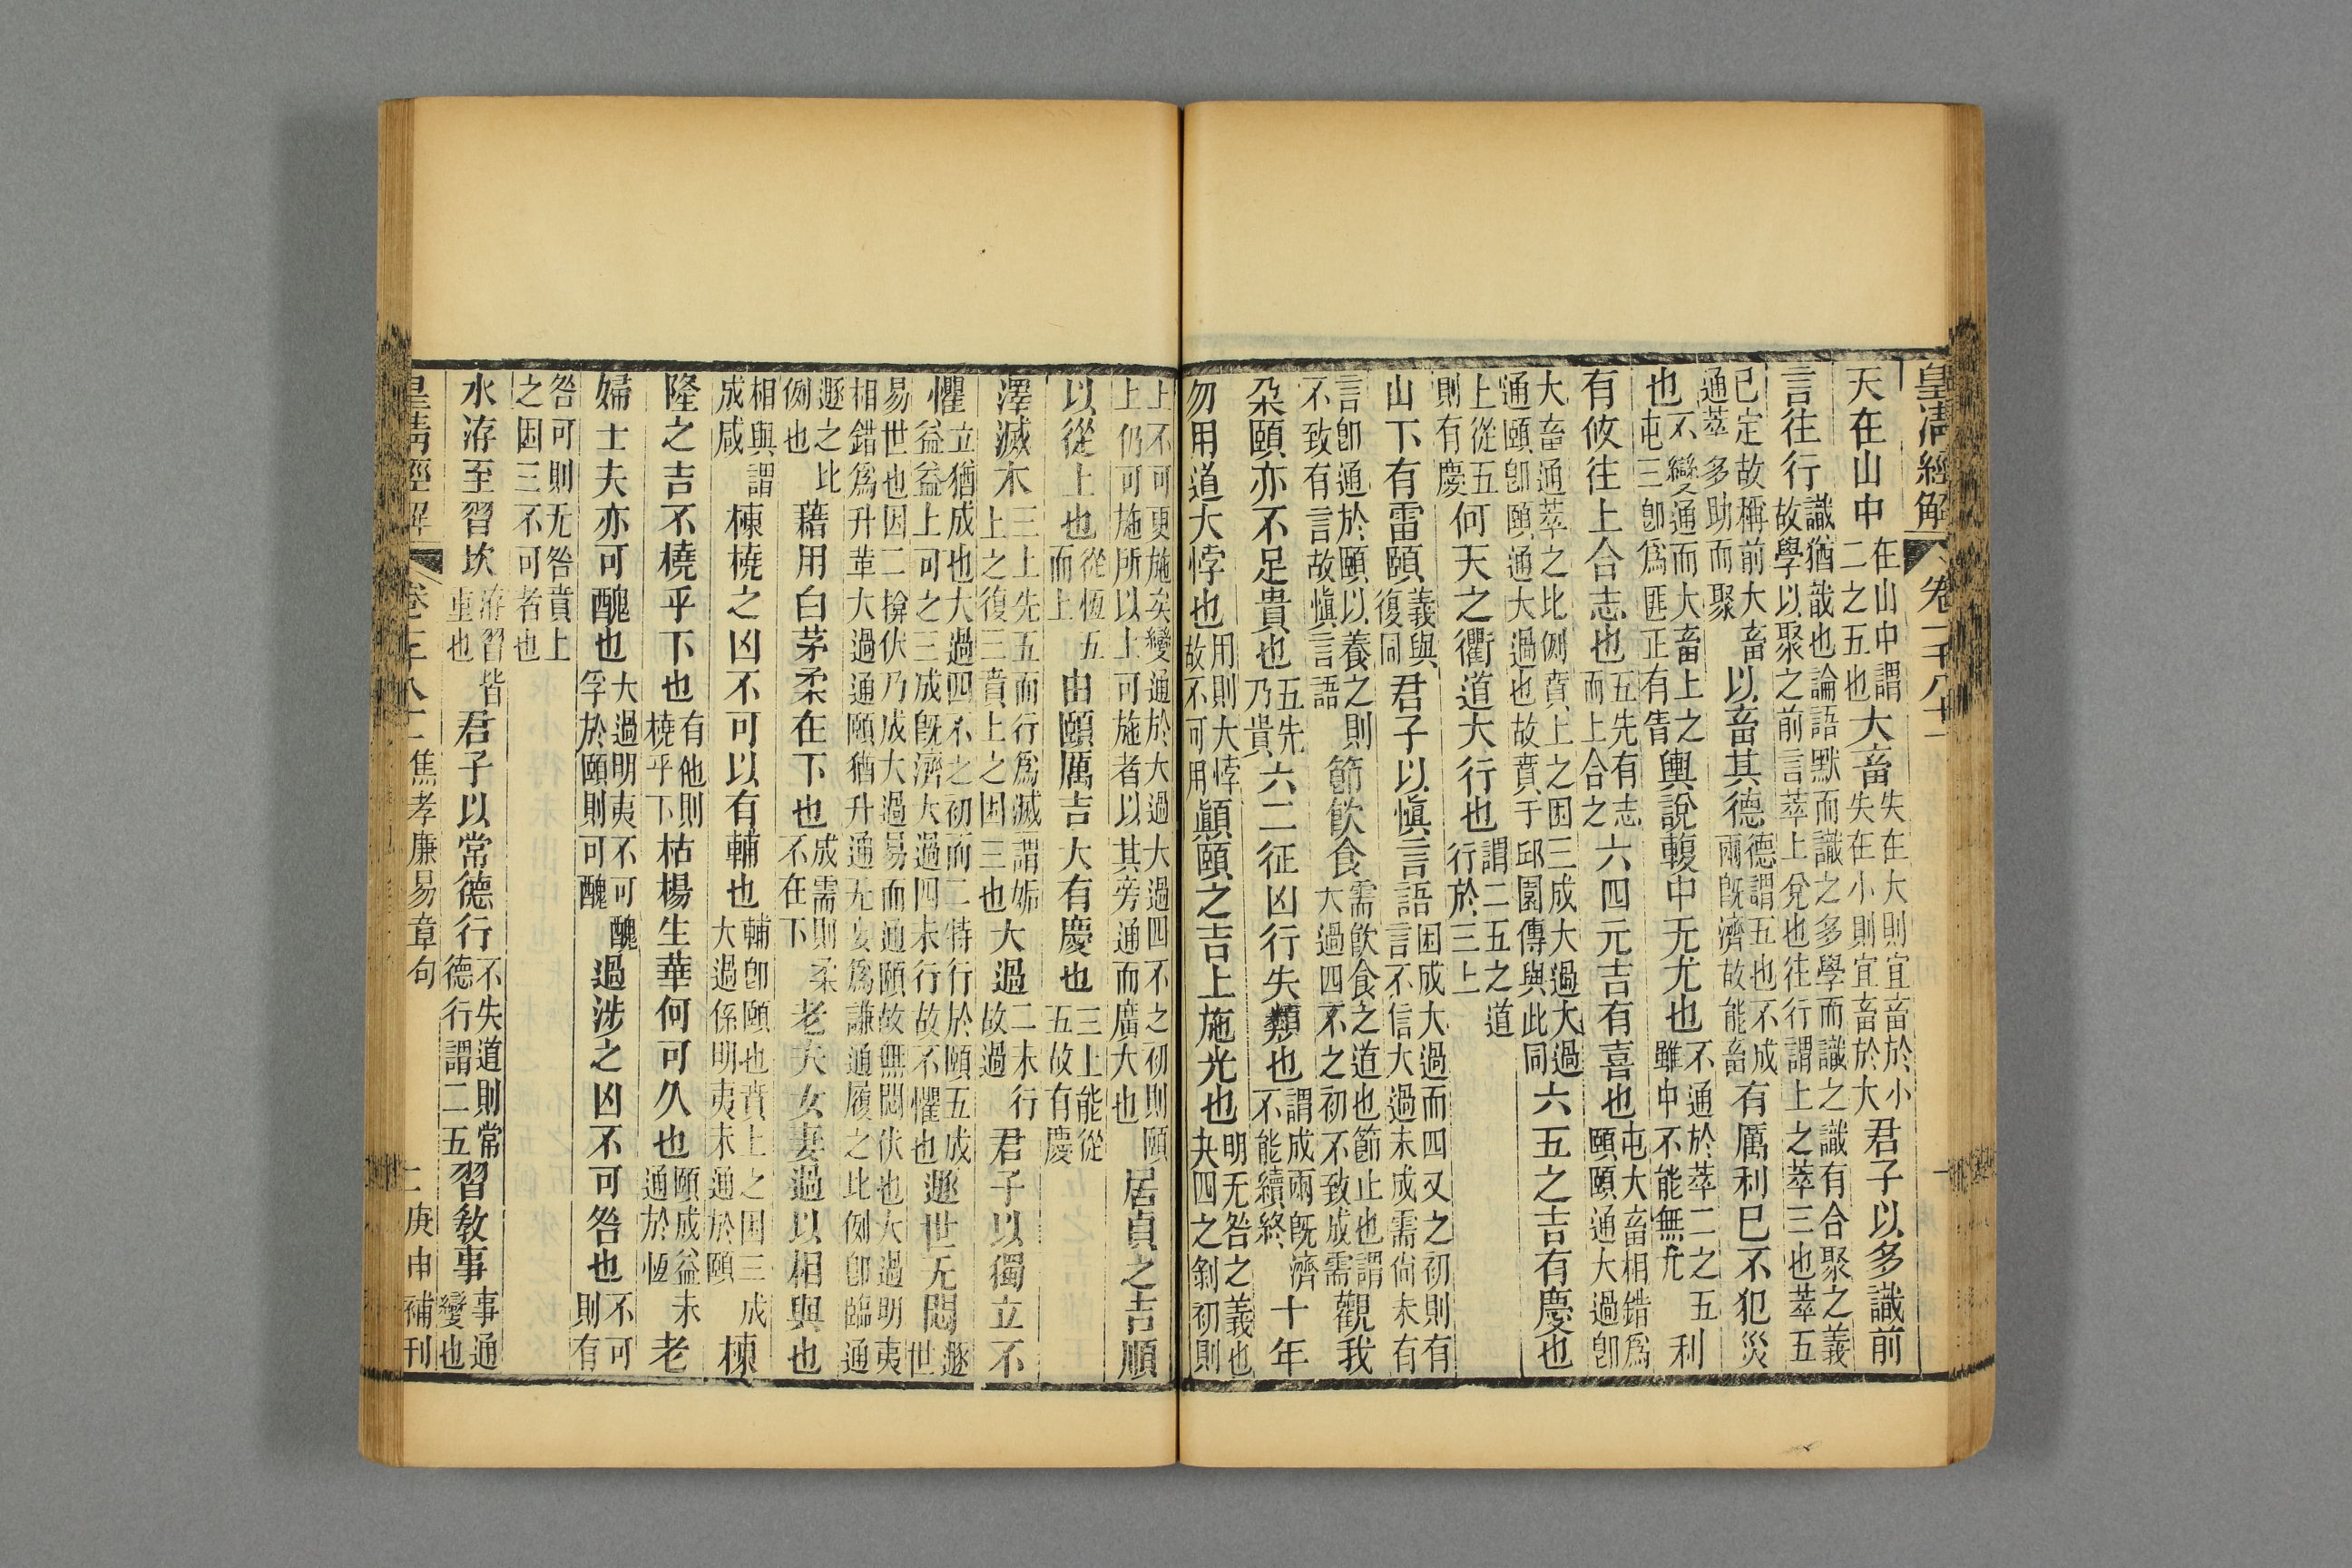 皇清經解 卷一千八十一 一
天在山中在山中謂二之五也大畜失在大則宜畜於小失在小則宜畜於大君子以多識前
言往行識猶哉也論語默而識之多學而識之識有合聚之義故學以聚之前言萃上兌也往行謂上之萃三也萃五
已定故稱前大畜通萃多助而聚以畜其德德謂五也不成兩旣濟故能畜有厲利已不犯災
也不變通而大畜上之屯三卽爲匪正有眚輿說輹中无尤也不通於萃二之五雖中不能無尤利
有攸往上合志也五先有志而上合之六四元吉有喜也屯大畜相錯爲頤頤通大過卽
大畜通萃之比例賁上之困三成大過大過通頤卽頤通大過也故賁于邱園傳與此同六五之吉有慶也
上從五則有慶何天之衢道大行也謂二五之道行於三上
山下有雷頤義與復同君子以愼言語困成大過而四又之初則有言不信大過未成需尙未有
言卽通於頤以養之則不致有言故愼言語節飮食需飮食之道也節止也謂大過四不之初不致成需觀我
朵頤亦不足貴也五先乃貴六二征凶行失類也謂成兩旣濟不能續終十年
勿用道大悖也用則大悖故不可用顚頤之吉上施光也明无咎之義也夬四之剝初則
上不可更施矣變通於大過大過四不之初則頤上仍可施所以上可施者以其旁通而廣大也居貞之吉順
以從上也從恆五而上由頤厲吉大有慶也三上能從五故有慶
澤滅木三上先五而行爲滅謂姤上之復三賁上之困三也大過二未行故過君子以獨立不
懼立猶成也大過四不之初而二特行於頤五成益益上可之三成旣濟大過四未行故不懼也遯世无悶遯世
易世也因二揜伏乃成大過易而通頤故無悶伏也大過明夷相錯爲升革大過通頤猶升通无妄爲謙通履之比例卽臨通
遯之比例也藉用白茅柔在下也成需則柔不在下老夫女妻過以相與也
相與謂成咸棟橈之凶不可以有輔也輔卽頤也賁上之困三成大過係明夷未通於頤棟
隆之吉不橈乎下也有他則橈乎下枯楊生華何可久也頤成益未通於恆老
婦士夫亦可醜也大過明夷不可醜孚於頤則可醜過涉之凶不可咎也不可則有
咎可則无咎賁上之困三不可者也
水洊至習坎洊習皆重也君子以常德行不失道則常德行謂二五習敎事事通變也
皇清經解 焦孝廉易章句 二 庚申補刊